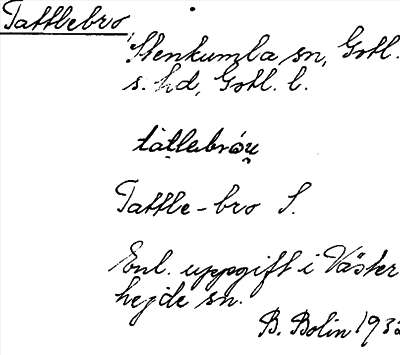 Tattlebro,
Stenkumla sn, Gotl.
s. hd, Gotl. l.
Tattle-bro S.
Enl. uppgift i Väster
hejde sn.
B. Bolin 193